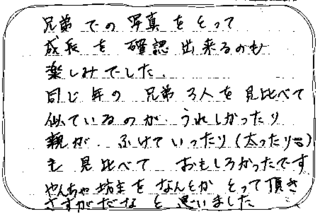 兄弟での写真をとって
成長を確認出来るのも
楽しみでした。
同じ年の兄弟3人を見比べて
似ているのがうれしかったり
親が、ふけていったり(太ったり
も見比べておもしろかったです
やんちゃ坊主をなんとかとって頂き
さすがだなと思いました